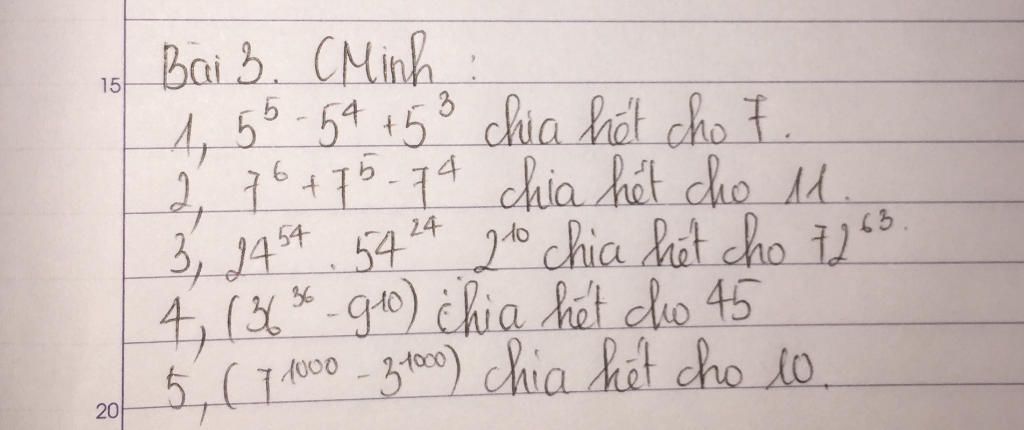 15
Bài 3. CMinh :
1, 5⁵ - 5⁴ + 5³ chia hết cho 7.
2, 7⁶ + 7⁵ - 7⁴ chia hết cho 11.
3, 24⁵⁴ . 54²⁴ 2¹⁰ chia hết cho 72⁶³.
4, (36³⁶ - 9¹⁰) chia hết cho 45
5, (7¹⁰⁰⁰ - 3¹⁰⁰⁰) chia hết cho 10.
20